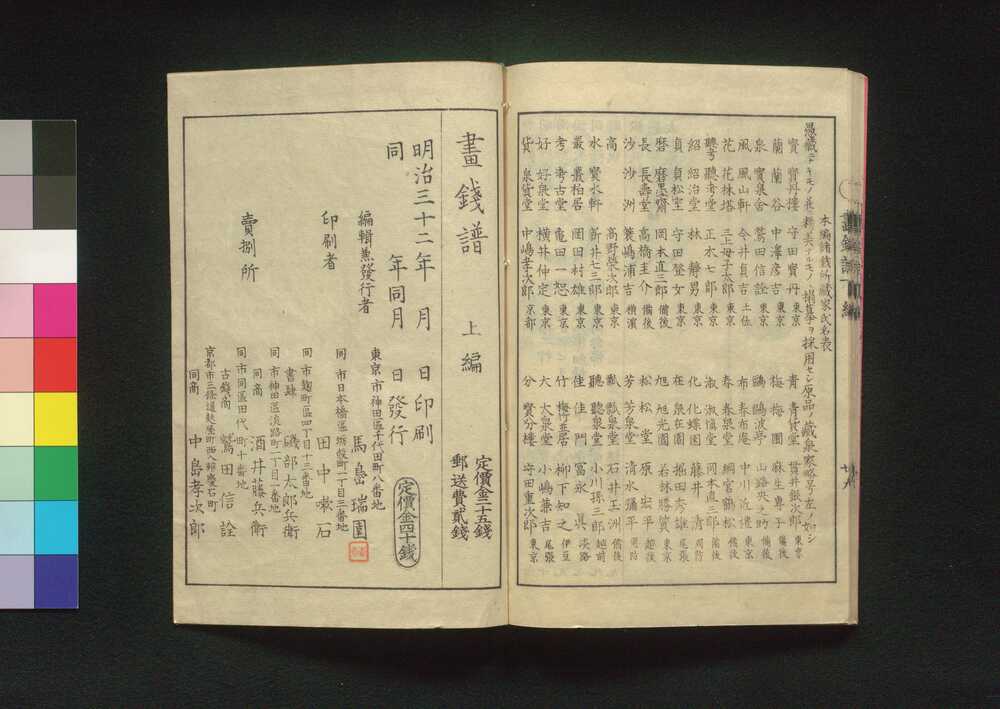 本編諸錢所藏家氏名表
寳 寳丹樓 守田寳丹 東京
蘭 蘭谷 中澤彦吉 東京
泉 寳泉舎 鷲田信詮 東京
風 風山軒 今井貞吉 土佐
花 花林塔 三上母子太郎 東京
聽 聽考堂 正木七郎 東京
紹 紹治堂 林靜男 東京
貞 貞松室 守田登女 東京
磨 磨墨齋 岡本直三郎 備後
長 長壽堂 高橋圭介 備後
沙 沙洲 簑嶋浦吉 橫濱
高 高野榮次郎 東京
水 寳水軒 新井七三郎 東京
叢 叢柏居 岡田村雄 東京
考 考古堂 亀田一恕 東京
好 好泉堂 横井仲定 東京
貨 泉貨堂 中嶋孝次郎 京都
青 青貨堂
梅 梅園 麻生專子 備後
鷗 鷗波亭 山路央之助 備後
布 春布庵 中川近禮 東京
春 春泉堂 綱官鶴松 備後
淑 淑愼堂 岡本直三郎 備後
化 化蝶園 藤井清 周防
在 泉在園 堀田秀雄 尾張
旭 旭光園 若林勝質 東京
松 松堂 原宏平 越後
芳 芳泉堂 清水彌平 周防
瓢 瓢泉堂 石井玉洲 備後
聽 聽泉堂 小川揚三郎 越前
佳 佳門 冨永 淡路
竹 柳下知之 伊豆
大 大泉堂 小嶋兼吉 尾張
分 寳分樓 守田重次郎 東京
畫錢譜 上編
定價金三十五錢
郵送費貳錢
明治三十二年 月 日印刷
同 年同月 日發行
定價金四十錢
東京市神田區千代田町八番地
編輯兼發行者 馬島瑞園
同市日本橋區坂本町一丁目三番地
印刷者 田中嗽石
同市麹町區四丁目十三番地
賣捌所 書肆 磯部太郎兵衛
同市神田區淡路町二丁目一番地
同商 酒井藤兵衛
同市同區田代町十番地
古錢商 鷲田信詮
同商 中島孝次郎